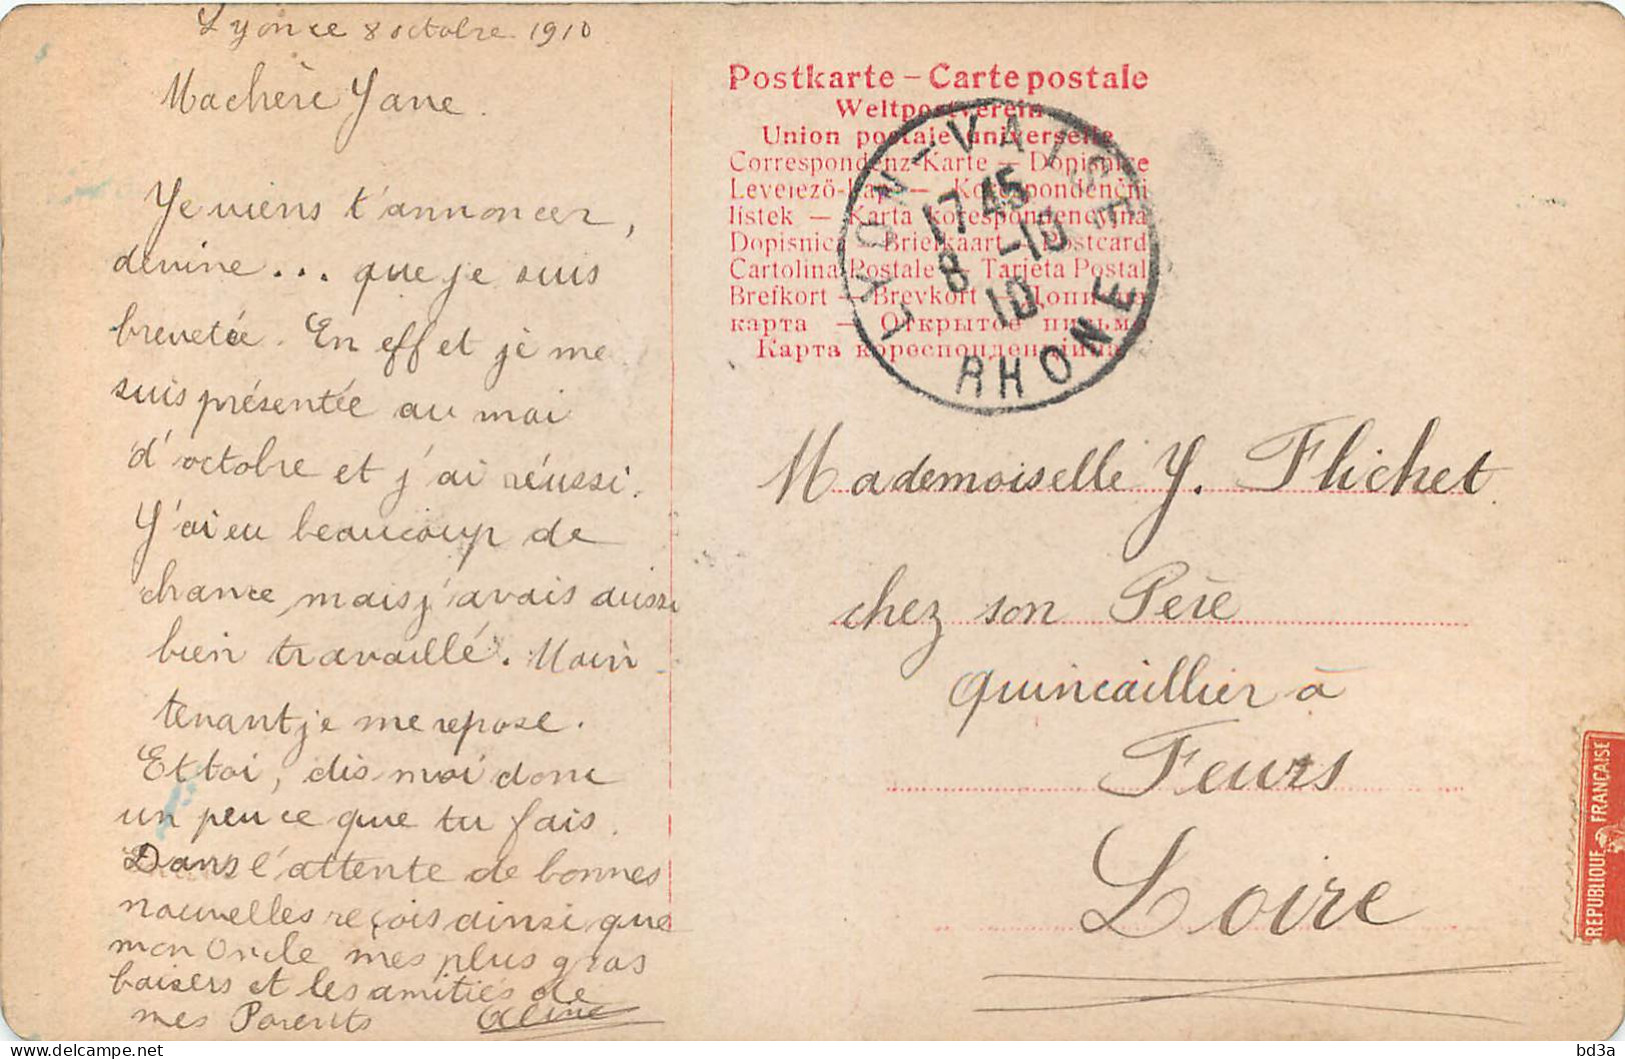 Lyon ce 8 octobre 1910
Ma chère Yane.
Je viens t'annoncer,
devine... que je suis
brevetée. En effet je me
suis présentée au moi
d'octobre et j'ai réussi.
J'ai eu beaucoup de
chance mais j'avais aussi
bien travaillé. Main
tenant je me repose.
Et toi, dis moi donc
un peu ce que tu fais.
Dans l'attente de bonnes
nouvelles reçois ainsi que
mon Oncle mes plus gros
baisers et les amitiés de
mes Parents Aline
Postkarte – Carte postale
Weltpostverein
Union postale universelle
Correspondenz-Karte – Dopisnice
Levelező-Lap – Korespondenční
listek – Karta korespondencyjna
Dopisnica – Briefkaart – Postcard
Cartolina Postale – Tarjeta Postal
Brefkort – Brevkort – Дописна
карта – Открытое письмо
Карта кореспонденційна
LYON-VAISE
17 45
8 -10
10
RHONE
Mademoiselle Y. Flichet
chez son Père
quincaillier à
Feurs
Loire
REPUBLIQUE FRANÇAISE
bd3a